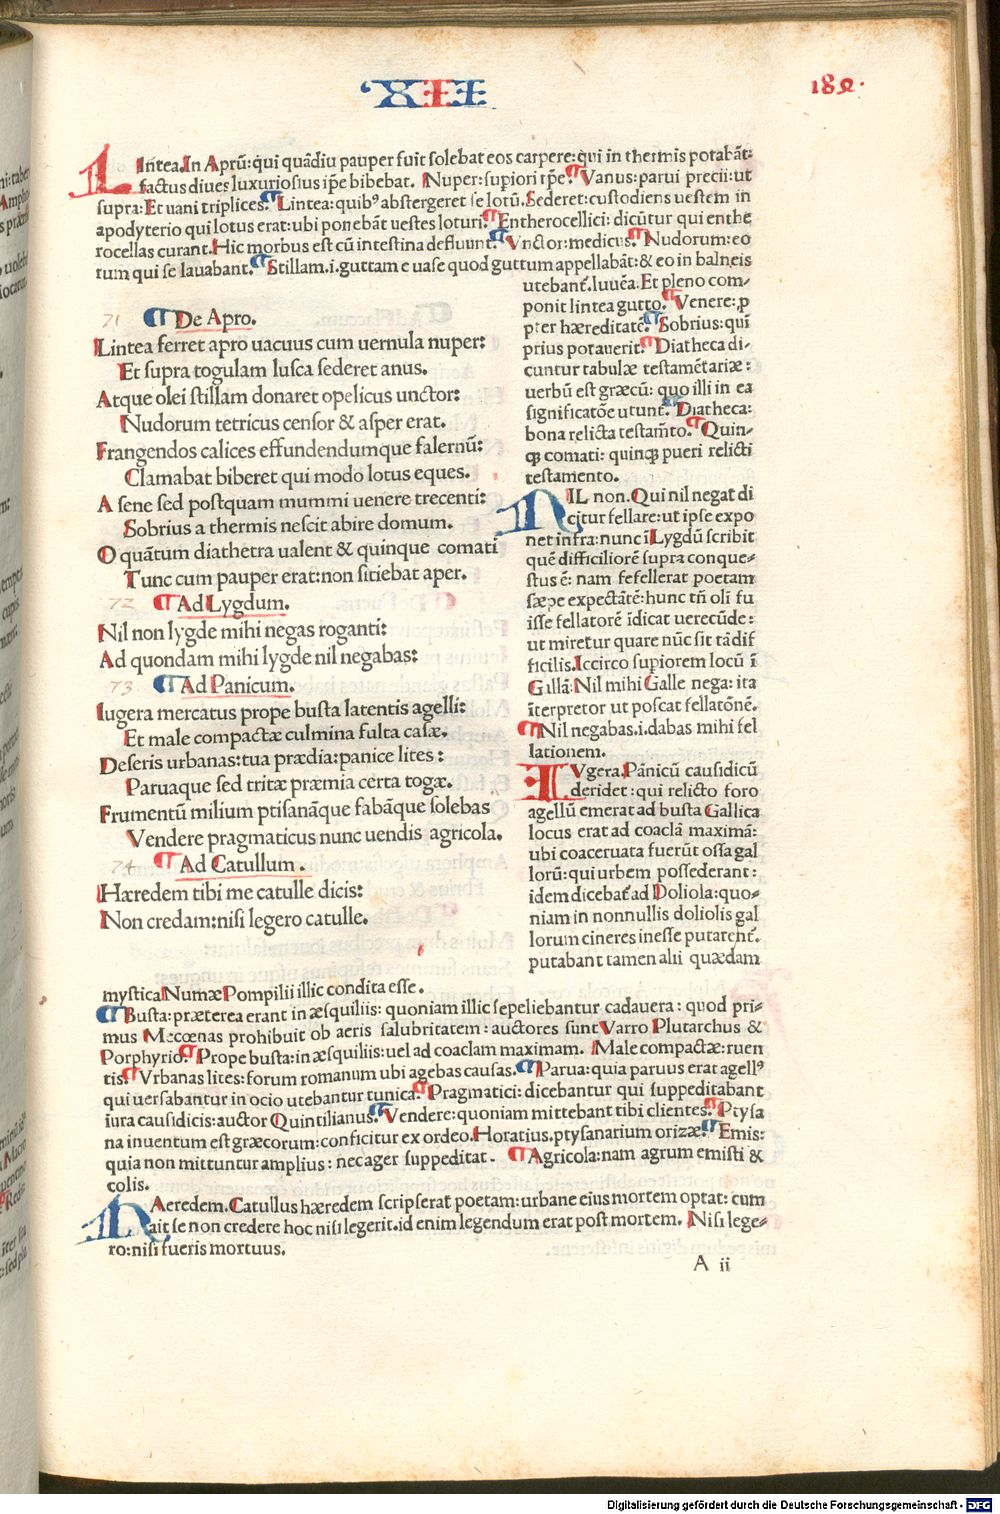 XII
182.
LIntea. In Aprū: qui quādiu pauper fuit solebat eos carpere: qui in thermis potabāt:
factus diues luxuriosius ip̄e bibebat. Nuper: supiori tp̄e. ¶ Vanus: parui precii: ut
supra: Et uani triplices. ¶ Lintea: quibꝰ abstergeret se lotū. Sederet: custodiens uestem in
apodyterio qui lotus erat: ubi ponebāt uestes loturi. ¶ Entherocellici: dicūtur qui enthe
rocellas curant. Hic morbus est cū intestina defluunt. ¶ Vnctor: medicus. ¶ Nudorum: eo
rum qui se lauabant. ¶ Stillam .i. guttam e uase quod guttum appellabāt: & eo in balneis
utebant̄. Iuuēa. Et pleno com-
ponit lintea gutto. ¶ Venere: ꝓ
pter hæreditatē. ¶ Sobrius: qui
prius potauerit. ¶ Diatheca di-
cuntur tabulæ testamētariæ:
uerbū est græcū: quo illi in ea
significatōe utunt̄. Diatheca:
bona relicta testam̄to. ¶ Quin-
qꝫ comati: quinqꝫ pueri relicti
testamento.
71 ¶ De Apro.
Lintea ferret apro uacuus cum uernula nuper:
Et supra togulam lusca sederet anus.
Atque olei stillam donaret opelicus unctor:
Nudorum tetricus censor & asper erat.
Frangendos calices effundendumque falernū:
Clamabat biberet qui modo lotus eques.
A sene sed postquam mummi uenere trecenti:
Sobrius a thermis nescit abire domum.
O quātum diathetra ualent & quinque comati
Tunc cum pauper erat: non sitiebat aper.
72 ¶ Ad Lygdum.
Nil non lygde mihi negas roganti:
Ad quondam mihi lygde nil negabas:
73 ¶ Ad Panicum.
Iugera mercatus prope busta latentis agelli:
Et male compactæ culmina fulta casæ.
Deseris urbanas: tua prædia: panice lites:
Paruaque sed tritæ præmia certa togæ.
Frumentū milium ptisanāque fabāque solebas
Vendere pragmaticus nunc uendis agricola.
74 ¶ Ad Catullum.
Hæredem tibi me catulle dicis:
Non credam: nisi legero catulle.
NIL non. Qui nil negat di
citur fellare: ut ipse expo
net infra: nunc ī Lygdū scribit
quē difficiliorē supra conque-
stus ē: nam fefellerat poetam
sæpe expectātē: hunc tn̄ oli fu
isse fellatorē īdicat uerecūde:
ut miretur quare nūc sit tā dif
ficilis. Iccirco supiorem locū ī
Gillā: Nil mihi Galle nega: ita
īterpretor ut poscat fellatōnē.
¶ Nil negabas .i. dabas mihi fel
lationem.
IVgera. Pānicū causidicū
deridet: qui relicto foro
agellū emerat ad busta Gallica
locus erat ad coaclā maximā:
ubi coaceruata fuerūt ossa gal
lorū: qui urbem possederant:
idem dicebat̄ ad Doliola: quo-
niam in nonnullis doliolis gal
lorum cineres inesse putarent̄.
putabant tamen alii quædam
mystica Numæ Pompilii illic condita esse.
¶ Busta: præterea erant in æsquiliis: quoniam illic sepeliebantur cadauera: quod pri-
mus Mecœnas prohibuit ob aeris salubritatem: auctores sunt Varro Plutarchus &
Porphyrio. ¶ Prope busta: in æsquiliis: uel ad coaclam maximam. Male compactæ: ruen
tis. ¶ Vrbanas lites: forum romanum ubi agebas causas. ¶ Parua: quia paruus erat agellꝰ
qui uersabantur in ocio utebantur tunica. ¶ Pragmatici: dicebantur qui suppeditabant
iura causidicis: auctor Quintilianus. ¶ Vendere: quoniam mittebant tibi clientes. ¶ Ptysa
na inuentum est græcorum: conficitur ex ordeo. Horatius. ptysanarium orizæ. ¶ Emis:
quia non mittuntur amplius: nec ager suppeditat. ¶ Agricola: nam agrum emisti &
colis.
HAeredem. Catullus hæredem scripserat poetam: urbane eius mortem optat: cum
ait se non credere hoc nisi legerit. id enim legendum erat post mortem. Nisi lege-
ro: nisi fueris mortuus.
A ii
Digitalisierung gefördert durch die Deutsche Forschungsgemeinschaft - DFG